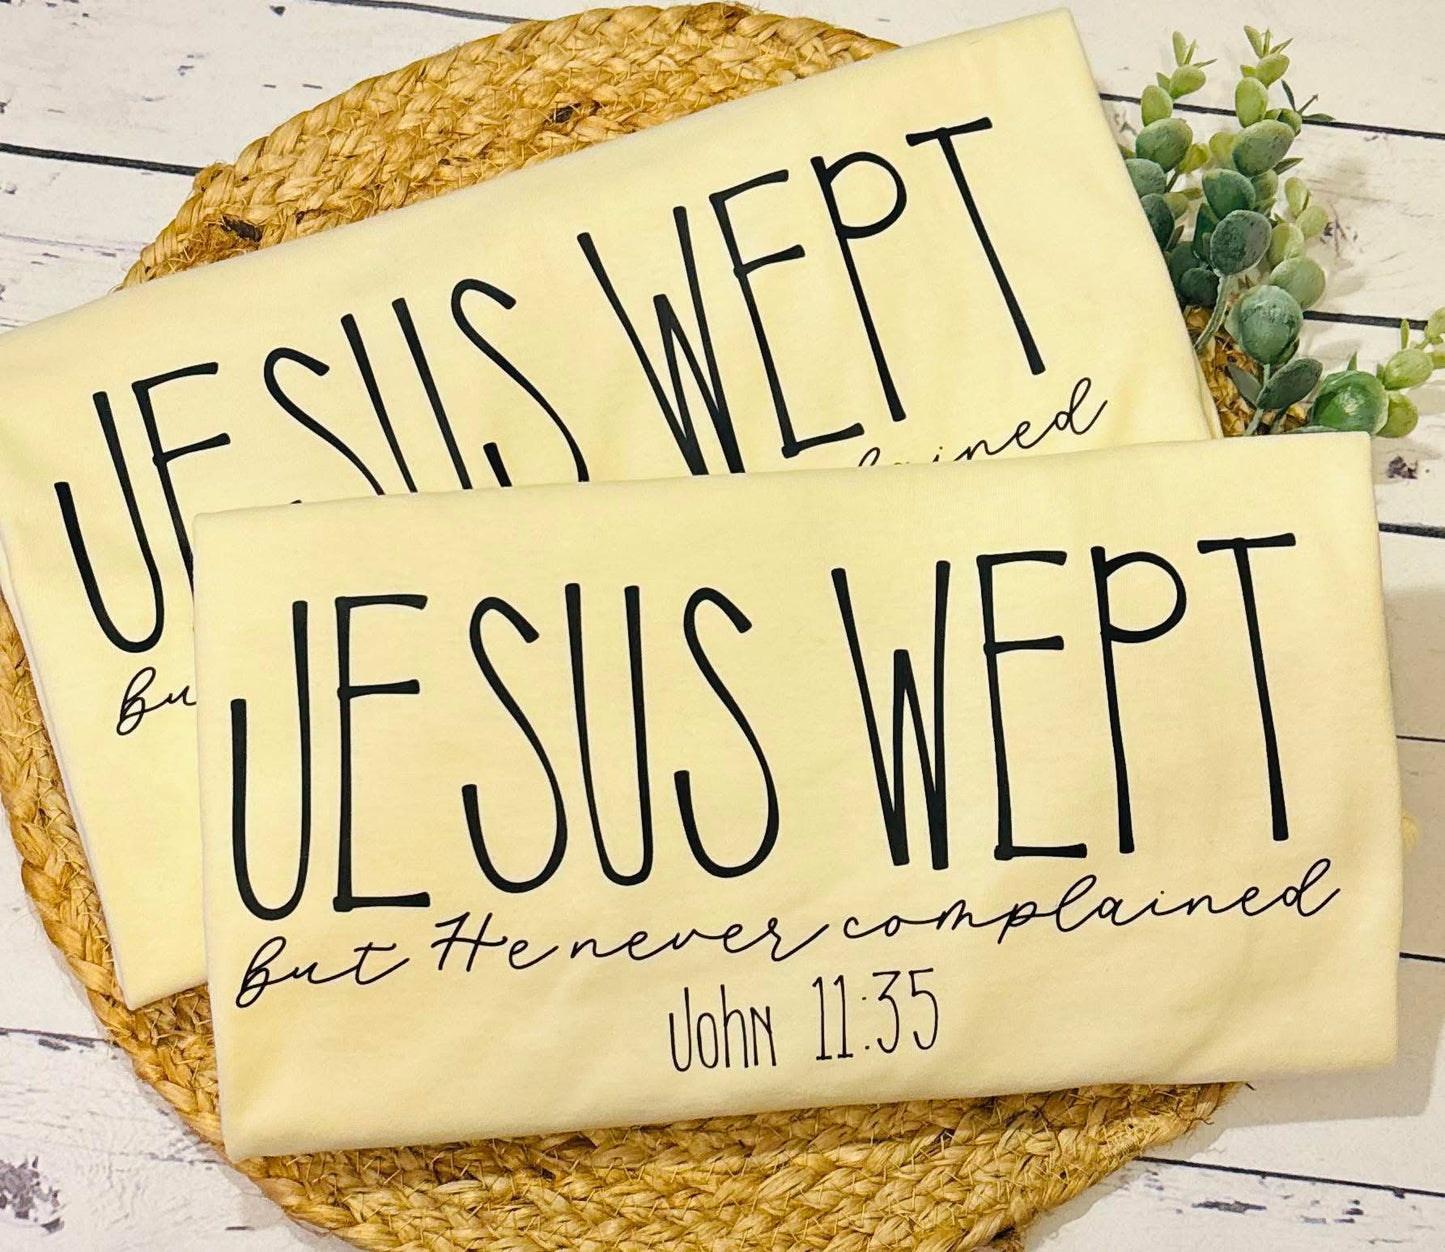 JESUS WEPT
JESUS WEPT
but He never complained
John 11:35